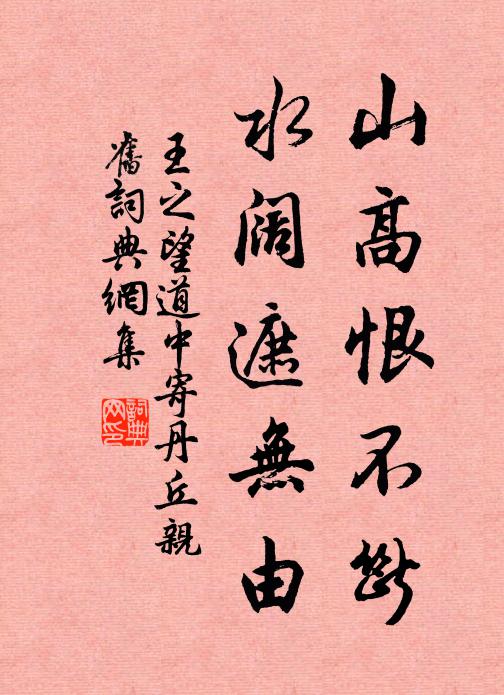 山高恨不斷
水阔遮無由
王之望道中寄丹丘親
舊詞典網集
詞典網印